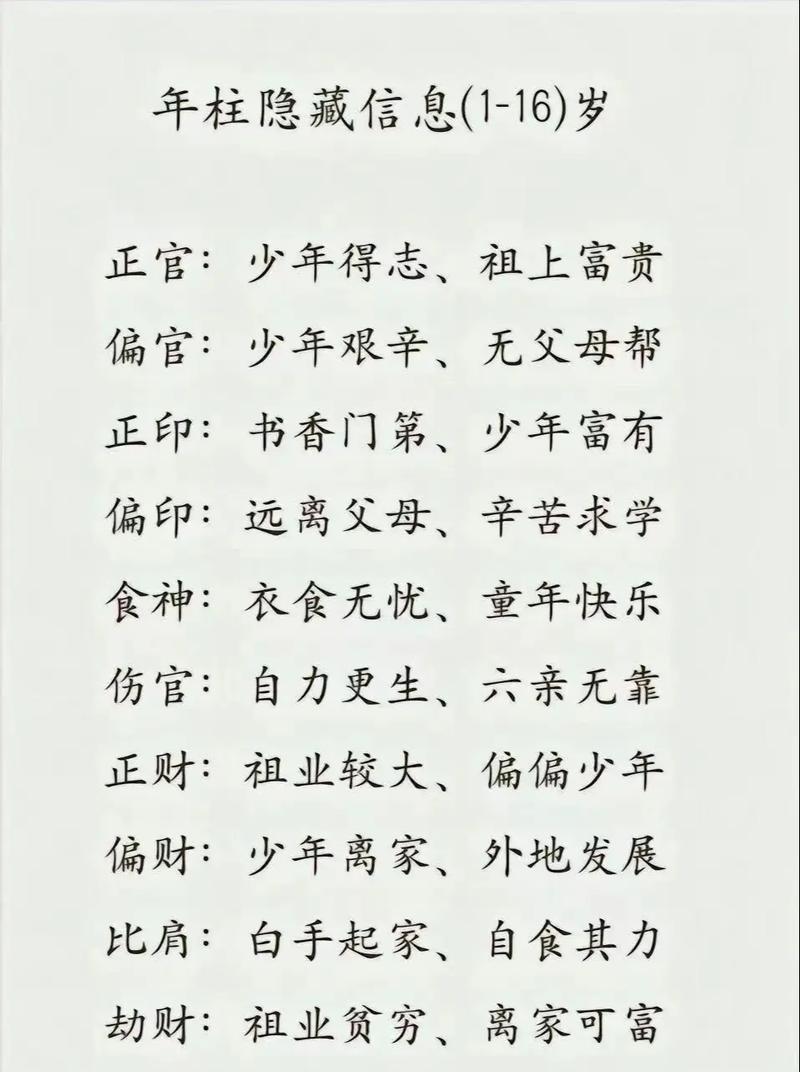 年柱隐藏信息(1-16)岁
正官：少年得志、祖上富贵
偏官：少年艰辛、无父母帮
正印：书香门第、少年富有
偏印：远离父母、辛苦求学
食神：衣食无忧、童年快乐
伤官：自力更生、六亲无靠
正财：祖业较大、偏偏少年
偏财：少年离家、外地发展
比肩：白手起家、自食其力
劫财：祖业贫穷、离家可富